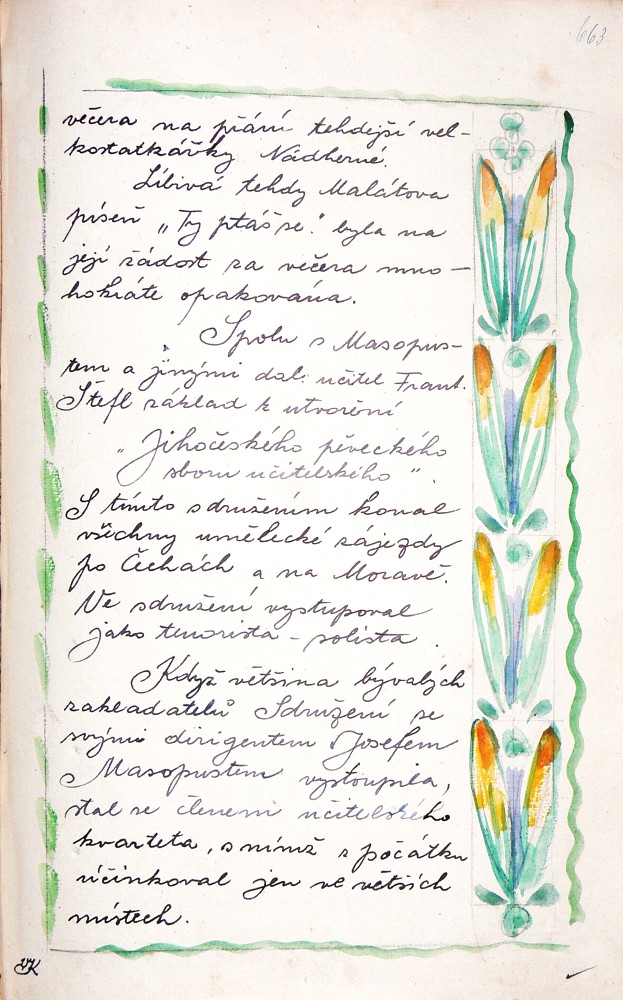 663
večera na přání tehdejší vel-
kostatkářky Nádherné.
Líbivá tehdy Malátova
píseň „Ty ptáš se." byla na
její žádost za večera mno-
hokráte opakována.
Spolu s Masopus-
tem a jinými dal učitel Frant.
Štefl základ k utvoření
„Jihočeského pěveckého
sboru učitelského".
S tímto sdružením konal
všechny umělecké zájezdy
po Čechách a na Moravě.
Ve sdružení vystupoval
jako tenorista - solista.
Když většina bývalých
zakladatelů Sdružení se
svými dirigentem Josefem
Masopustem vystoupila,
stal se členem učitelského
kvarteta, s nímž z počátku
účinkoval jen ve větších
místech.
VK